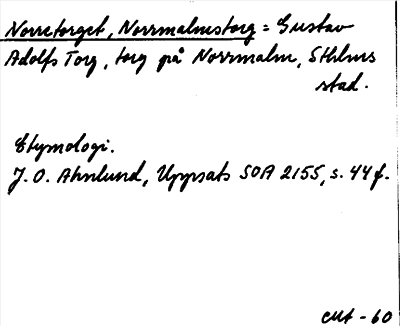 Norretorget, Norrmalmstorg = Gustav
Adolfs Torg, torg på Norrmalm, Sthlms
stad.
Etymologi.
J. O. Ahnlund, Uppsats SOA 2155, s. 44 f.
EMt - 60